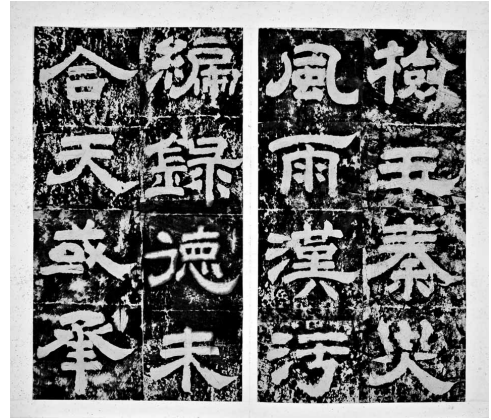 檢玉秦災
風雨漢污
編録德未
合天或承